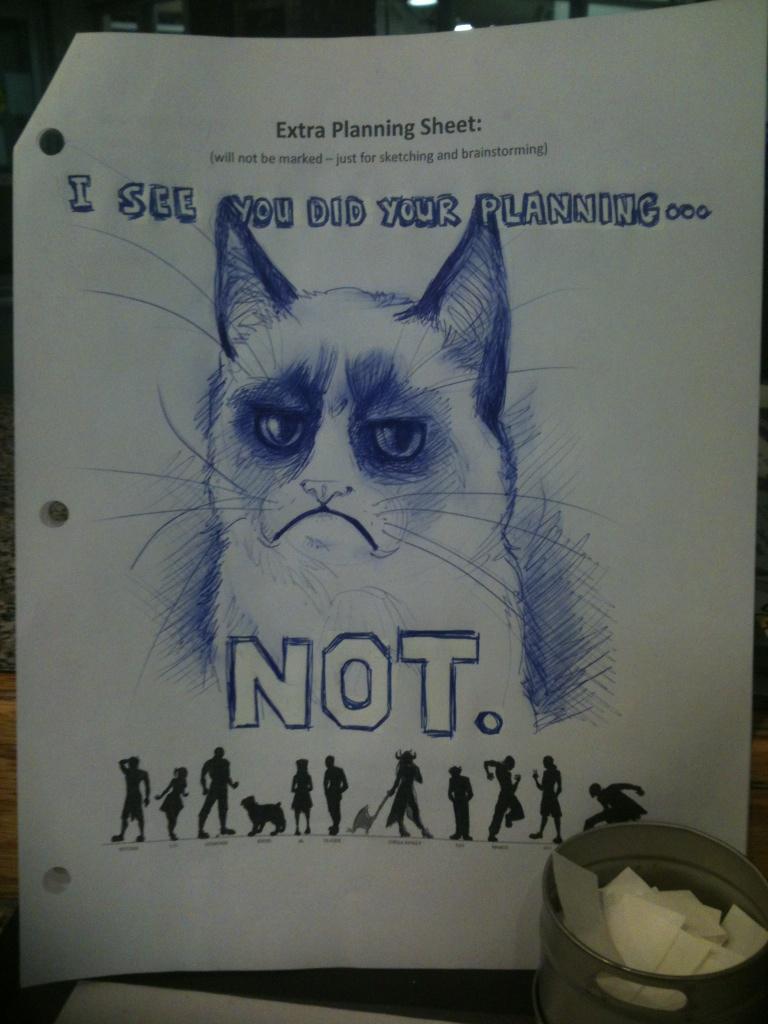 Extra Planning Sheet:
(will not be marked – just for sketching and brainstorming)
I SEE YOU DID YOUR PLANNING...
NOT.